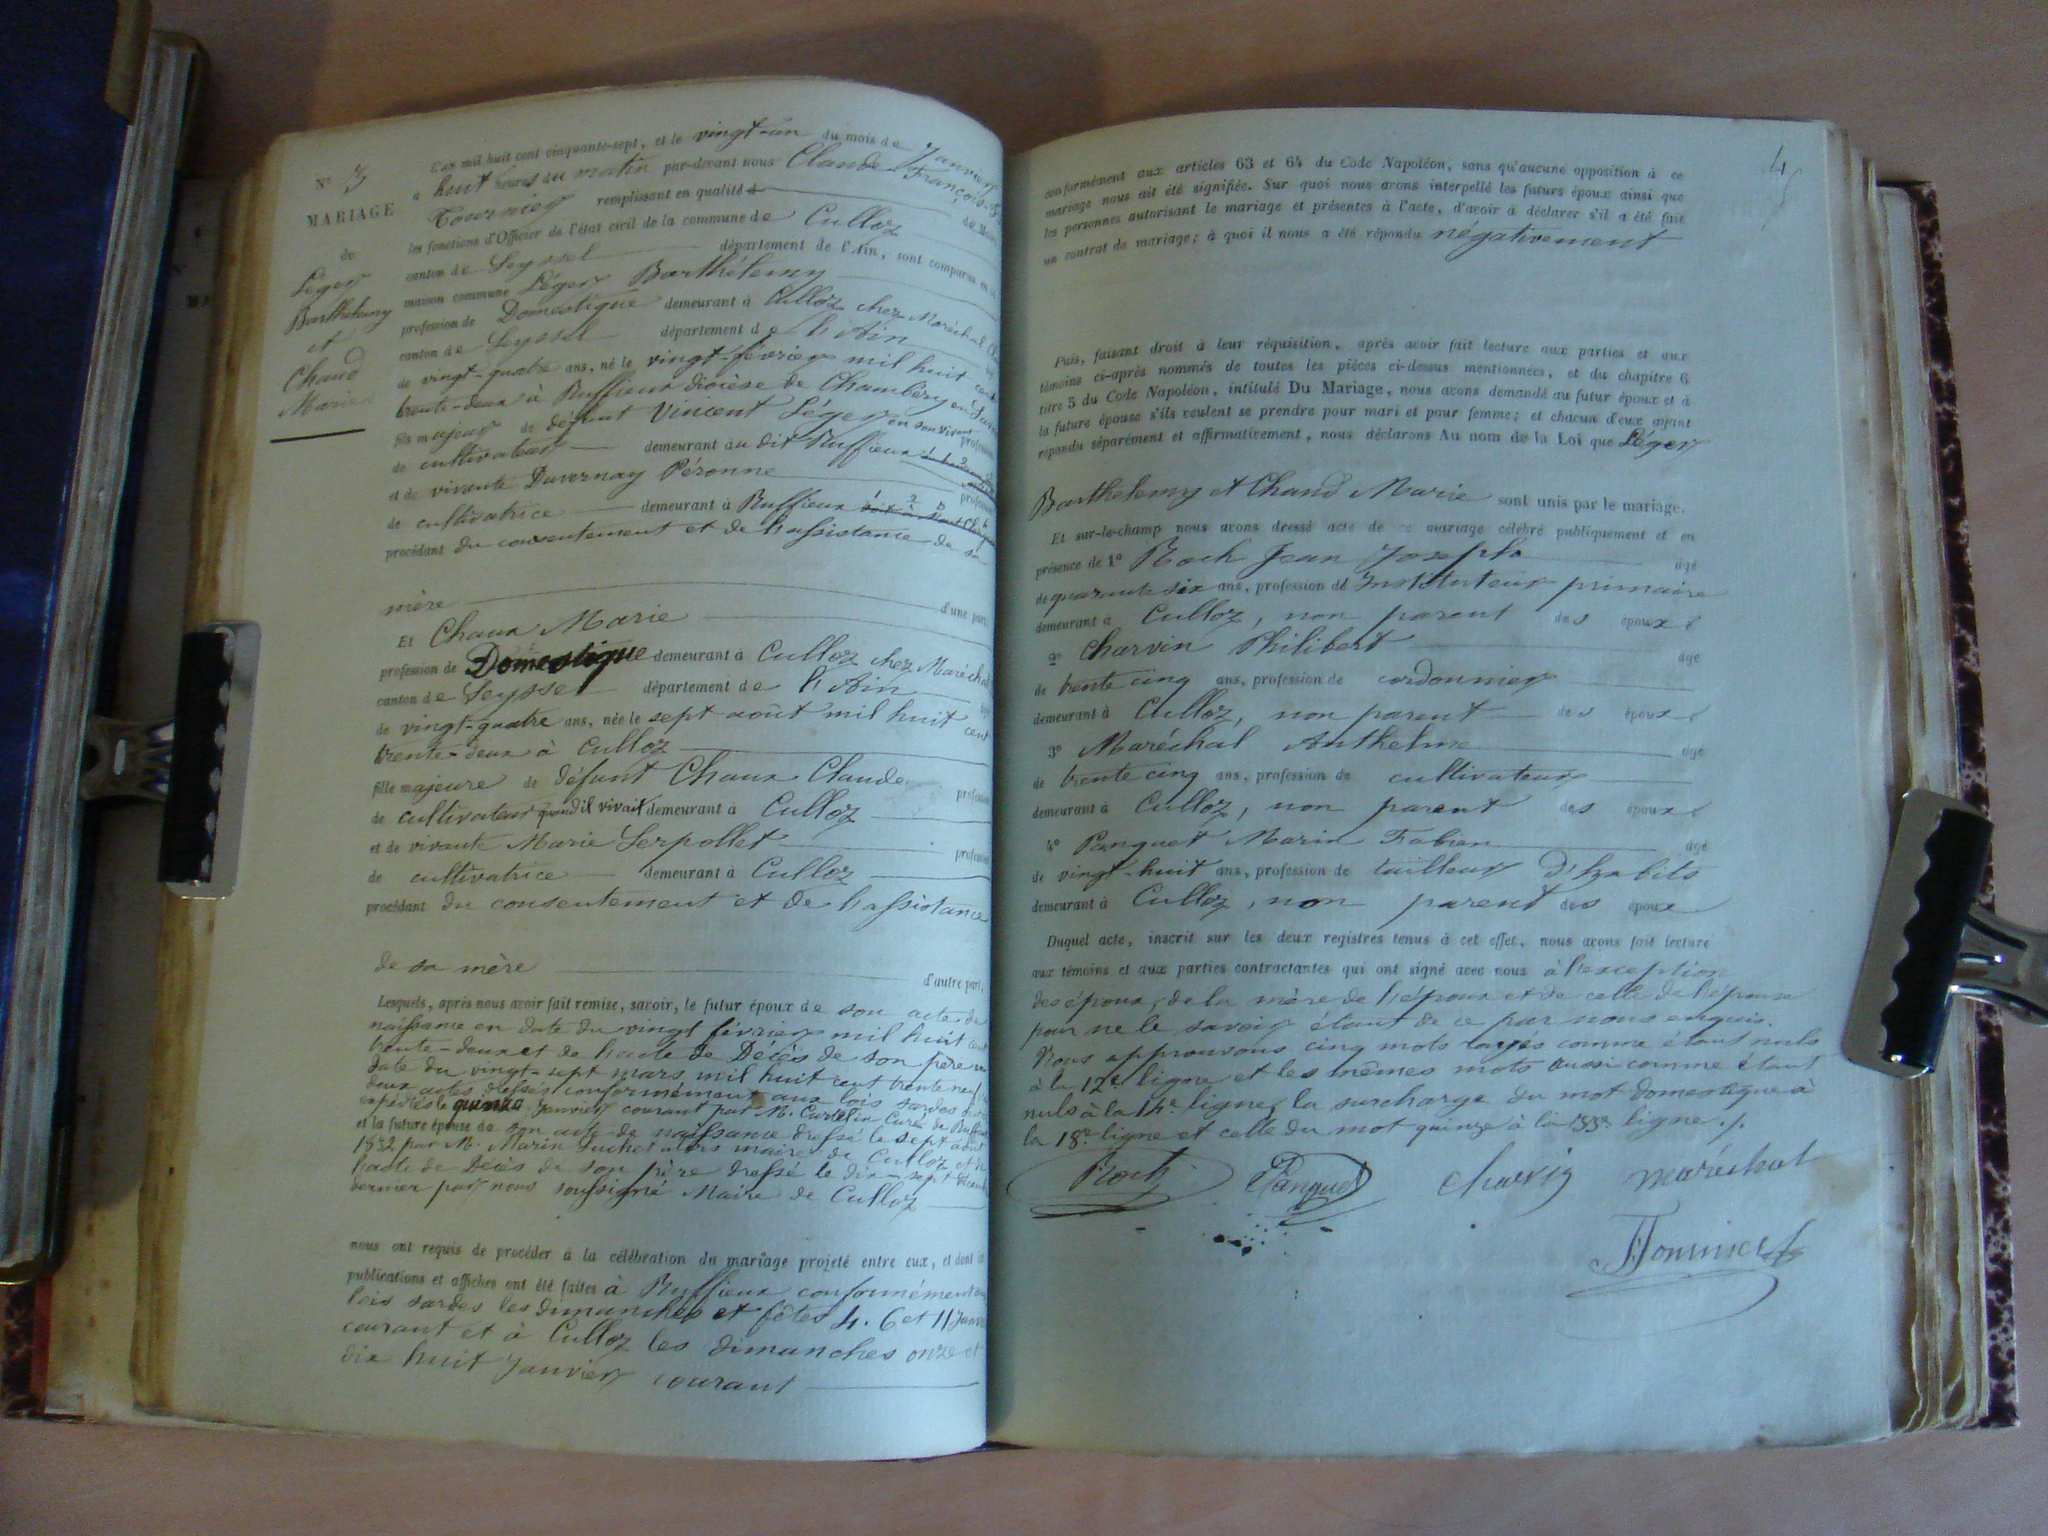 N° 3
MARIAGE
de
Léger
Barthélemy
et
Chaud
Marie
L'an mil huit cent cinquante-sept, et le vingt-un du mois de Janvier
à huit heures du matin par-devant nous Claude François
Tournier remplissant en qualité de
les fonctions d'Officier de l'état civil de la commune de Culloz
canton de Seyssel département de l'Ain, sont comparus en la
maison commune Léger Barthélemy
profession de Domestique demeurant à Culloz chez Maréchal
canton de Seyssel département de l'Ain
de vingt-quatre ans, né le vingt février mil huit cent
trente-deux à Ruffieux diocèse de Chambéry en
fils majeur de défunt Vincent Léger en son vivant profession
de cultivateur demeurant au dit Ruffieux
et de vivante Duvernay Péronne
de cultivatrice demeurant à Ruffieux
procédant du consentement et de l'assistance de sa
mère d'une part,
Et Chaux Marie
profession de Domestique demeurant à Culloz chez Maréchal
canton de Seyssel département de l'Ain
de vingt-quatre ans, née le sept août mil huit cent
trente-deux à Culloz
fille majeure de défunt Chaux Claude profession
de cultivateur quand il vivait demeurant à Culloz
et de vivante Marie Serpollet profession
de cultivatrice demeurant à Culloz
procédant du consentement et de l'assistance
de sa mère d'autre part,
Lesquels, après nous avoir fait remise, savoir, le futur époux de son acte de
naissance en date du vingt février mil huit cent
trente-deux et de l'acte de Décès de son père en
date du vingt-sept mars mil huit cent trente neuf
deux actes dressés conformément aux lois sardes
expédiés le quinze Janvier courant par M. Curé de
et la future épouse de son acte de naissance dressé le sept août
1832 par M. Marin alors maire de Culloz et de
l'acte de Décès de son père dressé le dix-sept
dernier par nous soussigné Maire de Culloz
nous ont requis de procéder à la célébration du mariage projeté entre eux, et dont les
publications et affiches ont été faites à Ruffieux conformément aux
lois sardes les dimanches et fêtes 4. 6 et 11 Janvier
courant et à Culloz les dimanches onze et
dix huit Janvier courant
4
conformément aux articles 63 et 64 du Code Napoléon, sans qu'aucune opposition à ce
mariage nous ait été signifiée. Sur quoi nous avons interpellé les futurs époux ainsi que
les personnes autorisant le mariage et présentes à l'acte, d'avoir à déclarer s'il a été fait
un contrat de mariage; à quoi il nous a été répondu négativement
Puis, faisant droit à leur réquisition, après avoir fait lecture aux parties et aux
témoins ci-après nommés de toutes les pièces ci-dessus mentionnées, et du chapitre 6
titre 5 du Code Napoléon, intitulé Du Mariage, nous avons demandé au futur époux et à
la future épouse s'ils veulent se prendre pour mari et pour femme; et chacun d'eux ayant
répondu séparément et affirmativement, nous déclarons Au nom de la Loi que Léger
Barthélemy et Chaud Marie sont unis par le mariage.
Et sur-le-champ nous avons dressé acte de ce mariage célébré publiquement et en
présence de 1° Roch Jean Joseph âgé
de quarante six ans, profession de Instituteur primaire
demeurant à Culloz, non parent des époux
2° Charvin Philibert âgé
de trente cinq ans, profession de cordonnier
demeurant à Culloz, non parent des époux
3° Maréchal Anthelme âgé
de trente cinq ans, profession de cultivateur
demeurant à Culloz, non parent des époux
4° Panguet Marin Fabien âgé
de vingt-huit ans, profession de tailleur d'habits
demeurant à Culloz, non parent des époux
Duquel acte, inscrit sur les deux registres tenus à cet effet, nous avons fait lecture
aux témoins et aux parties contractantes qui ont signé avec nous à l'exception
des époux, de la mère de l'époux et de celle de l'épouse
pour ne le savoir étant de ce par nous enquis.
Nous approuvons cinq mots rayés comme étant nuls
à la 12e ligne et les mêmes mots aussi comme étant
nuls à la 14e ligne, la surcharge du mot domestique à
la 18e ligne et celle du mot quinze à la 33e ligne ./.
Roch Panguet Charvin Maréchal
Tournier